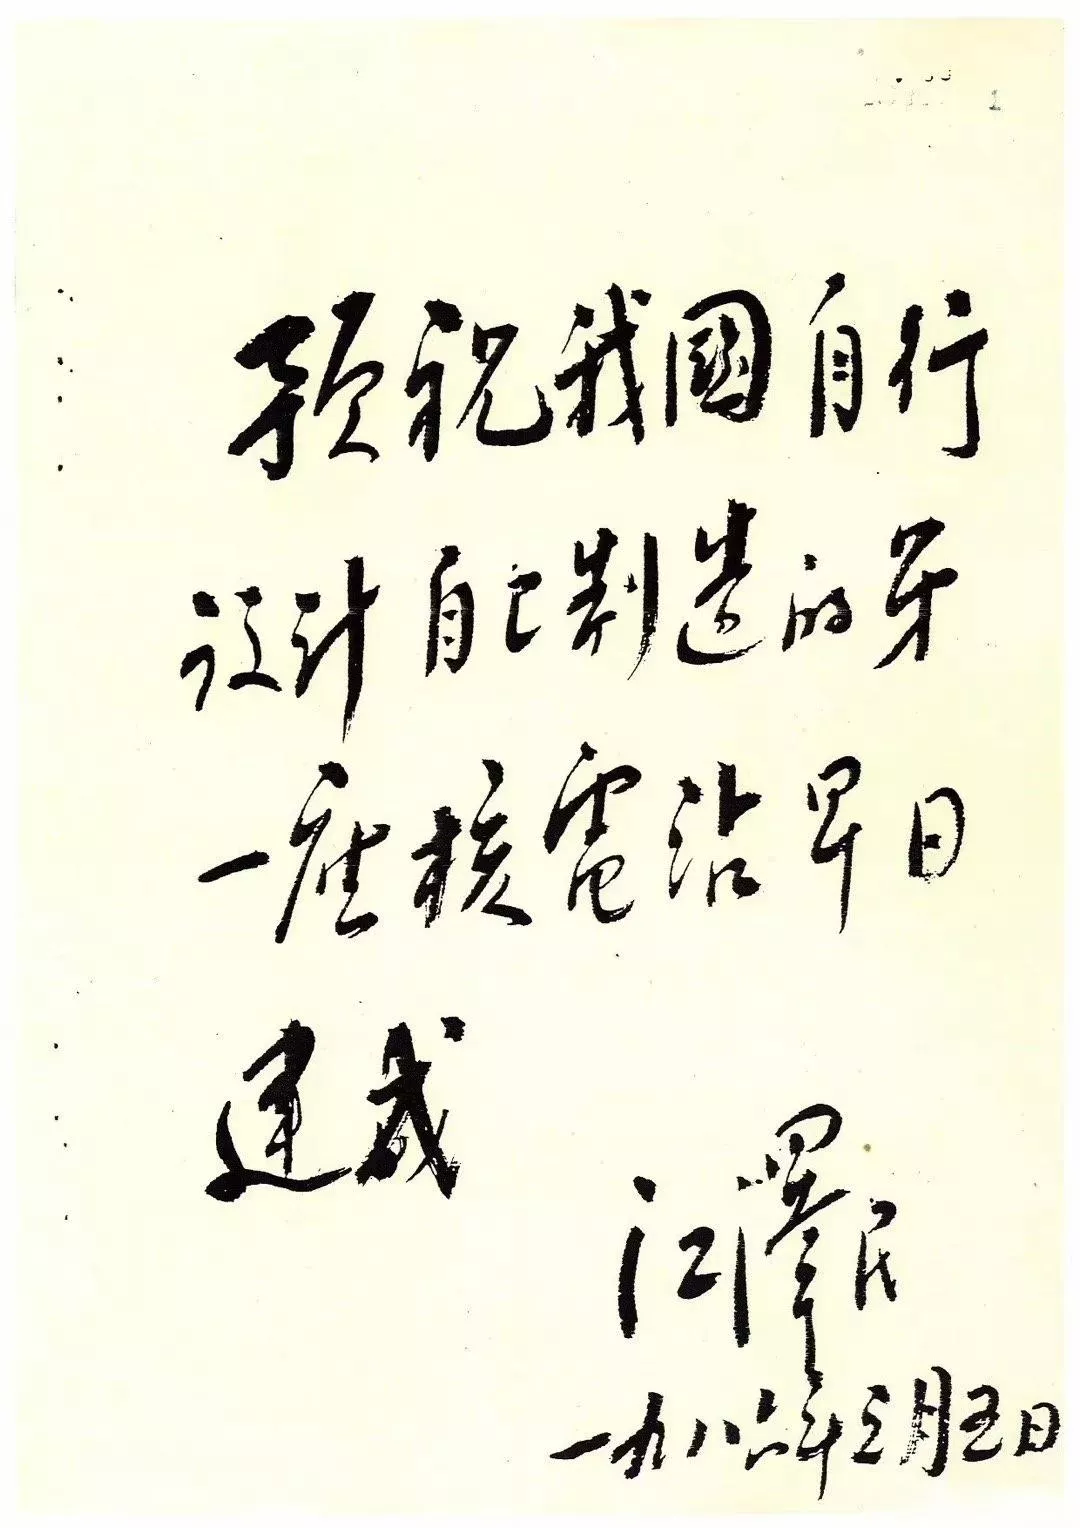 预祝我國自行
设计自己制造的第
一座核電站早日
建成
江澤民
一九八六年三月五日